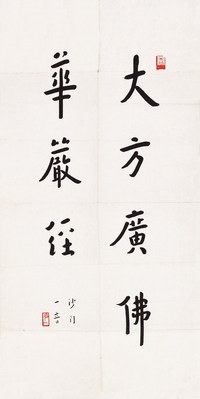 大方廣佛
華嚴經
沙門
一音